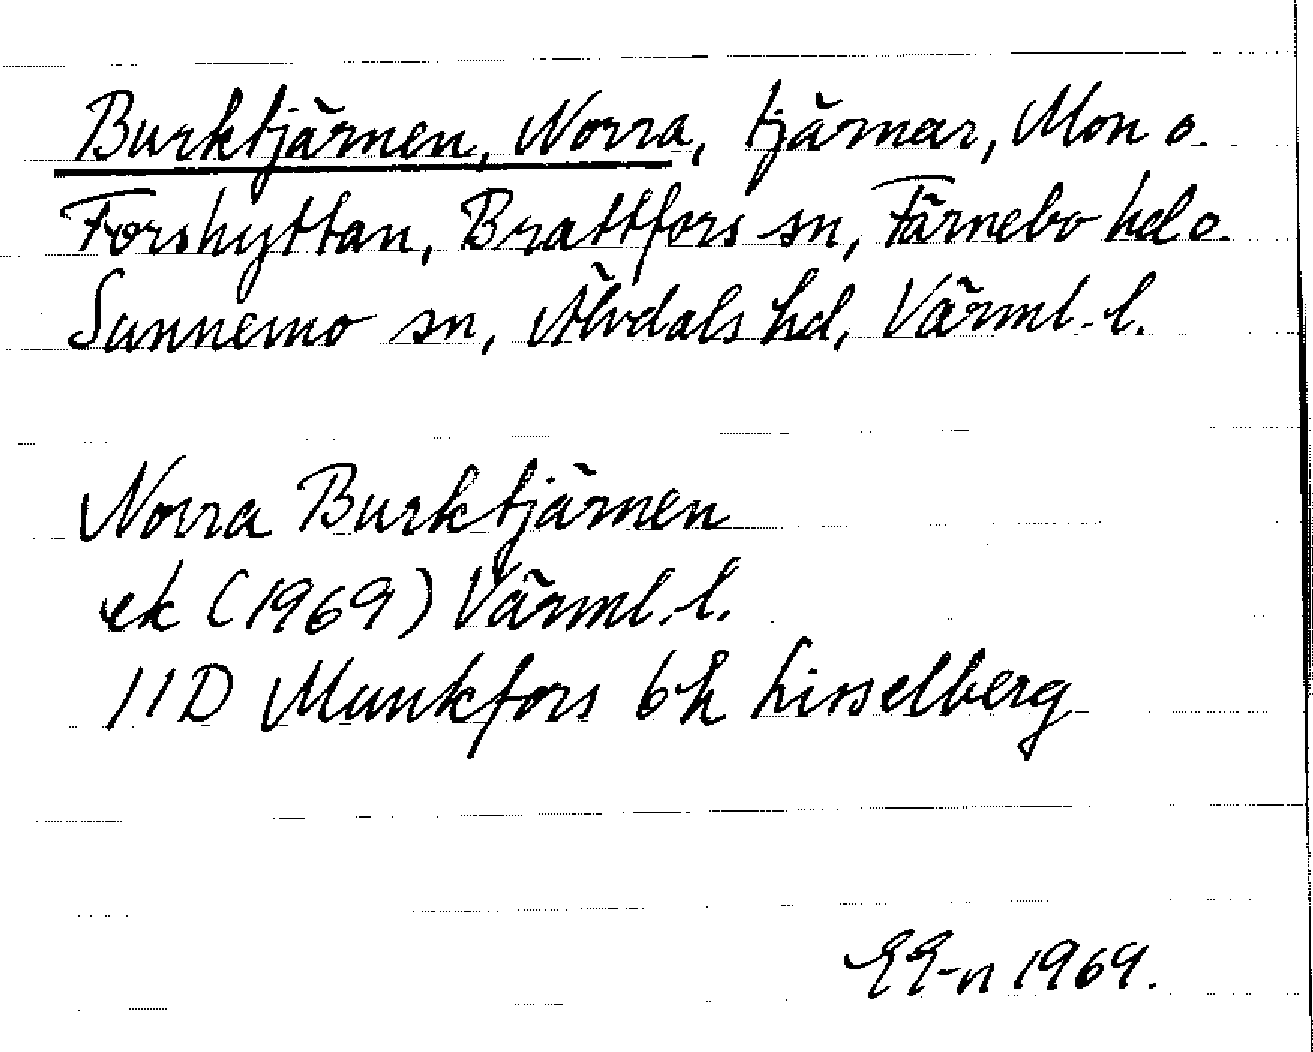 Burktjärnen, Norra, tjärnar, Mon o.
Forshyttan, Brattfors sn, Färnebo hd o.
Sunnemo sn, Älvdals hd, Värml. l.
Norra Burktjärnen
ek (1969) Värml. l.
11D Munkfors 6h Lisselberg
EE-n 1969.